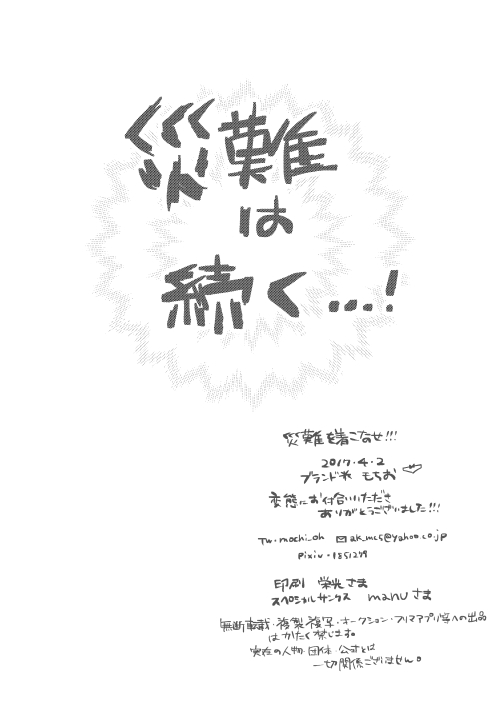 災難
は
続く…!
災難を着こなせ!!!
2017・4・2
ブランド米 もちお♡
変態にお付合いいただき
ありがとうございました!!!
Tw・mochi_oh ✉ak_mc5@yahoo.co.jp
Pixiv・1851279
印刷 栄光さま
スペシャルサンクス manuさま
無断転載・複製・複写・オークション・フリマアプリ等への出品
はかたく禁じます。
実在の人物・団体・公式とは
一切関係ございません。